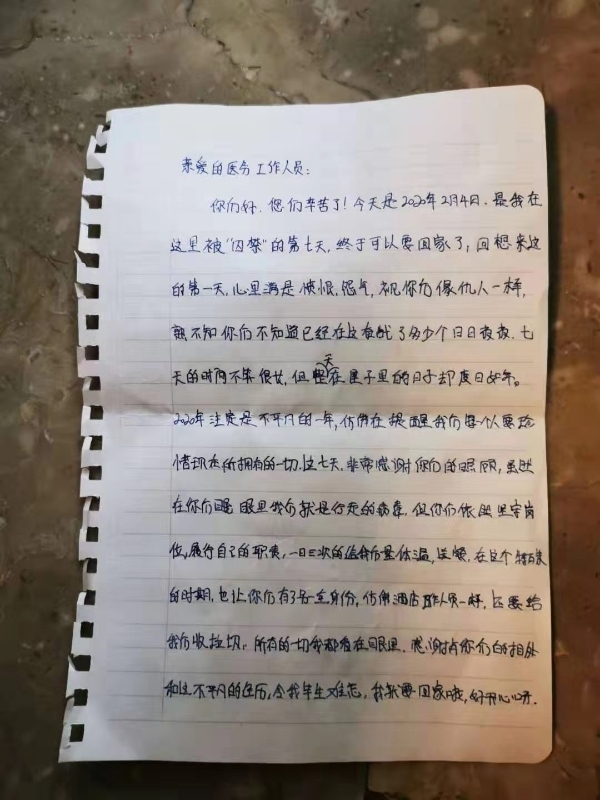 亲爱的医务工作人员:
你们好,您们辛苦了!今天是2020年2月4日,是我在
这里被“囚禁”的第七天,终于可以要回家了,回想来这
的第一天,心里满是愤恨,怨气,视你们像仇人一样,
孰不知你们不知道已经在这夜战了多少个日日夜夜,七
天的时间不算很长,但整天在屋子里的日子却度日如年。
2020年注定是不平凡的一年,仿佛在提醒我们每个人要珍
惜现在所拥有的一切,这七天,非常感谢你们的照顾,虽然
在你们眼里我们就是行走的病毒,但你们依然坚守岗
位,履行自己的职责,一日三次的给我们量体温,送餐,在这个特殊
的时期,也让你们有了另一重身份,仿佛酒店工作人员一样,还要给
我们收垃圾,所有的一切我都看在眼里,感谢与你们的相处
和这不平凡的经历,令我毕生难忘,我就要回家啦,好开心呀.